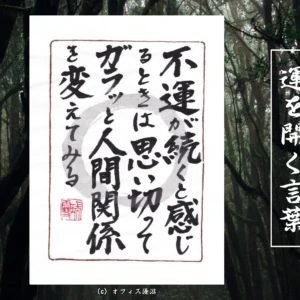 運を開く言葉
不運が続くと感じ
るときは思い切って
ガラッと人間関係
を変えてみる
(c) オフィス海沼